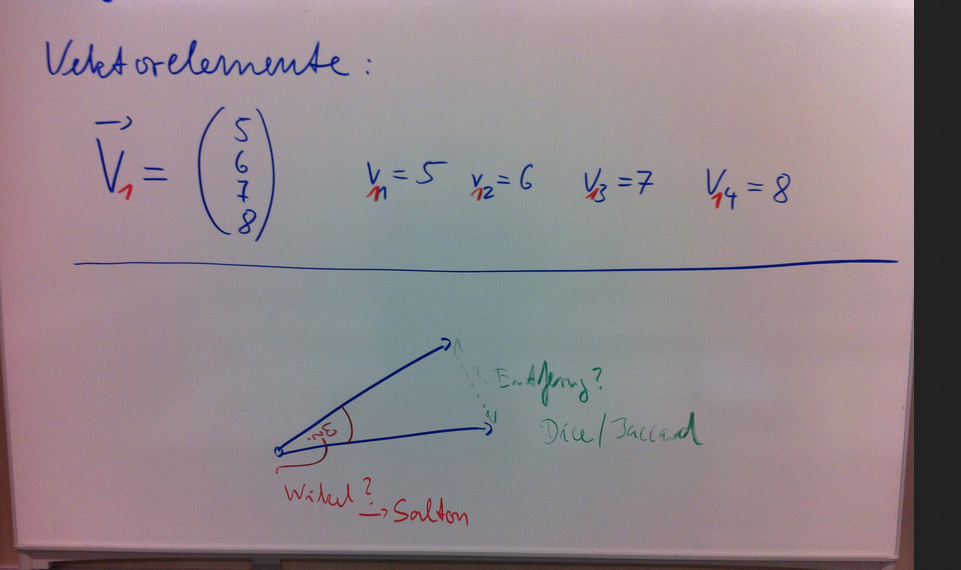 Vektorelemente:
V₁ = (5 6 7 8) v₁₁ = 5 v₁₂ = 6 v₁₃ = 7 v₁₄ = 8
? Entfernung?
Dice/Jaccard
Winkel? → Salton